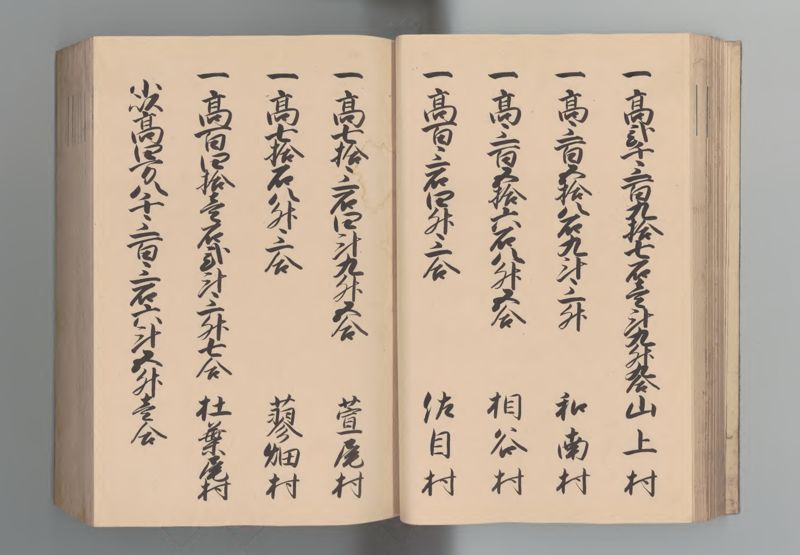 一高弐千三百九拾七石壱斗九升九合山上村
一高三百五拾八石九斗三升 和南村
一高三百五拾六石八升五合 相谷村
一高百三石四升三合 佐目村
一高七拾三石四斗九升五合 萱尾村
一高七拾石八升三合 蓼畑村
一高百四拾壱石弐斗三升七合 杜葉尾村
小以高四万八千三百三石六斗五升壱合